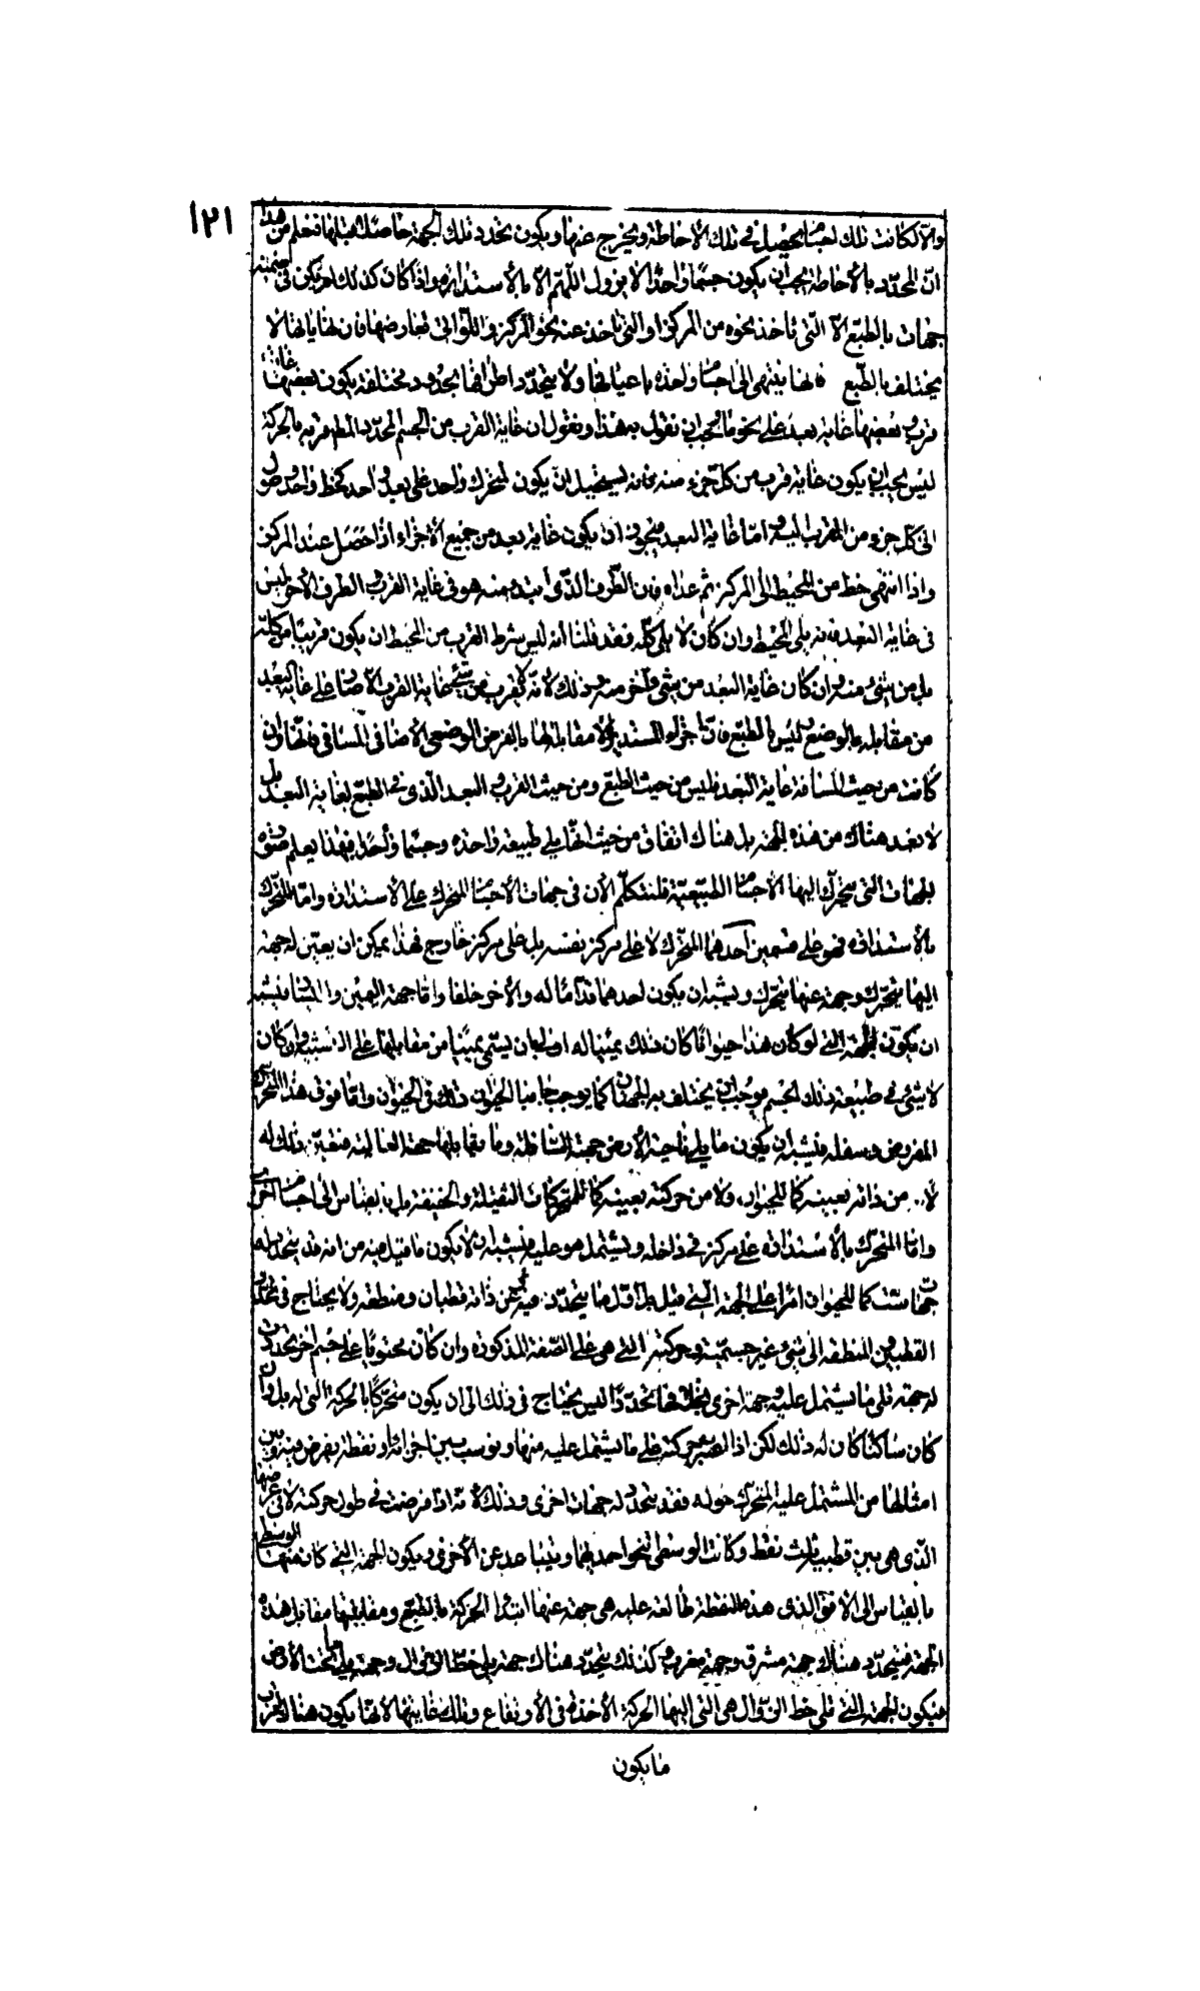 ١٢١
والا لكانت تلك اجسام يحصل في تلك الأحاطة ويخرج عنها ويكون تحدد تلك الجهة حاصلا قبلها فنعلم من هذا
ان المحدد بالأحاطة يجب ان يكون جسما واحدا لا يزول اللهم الا بالأستدارة واذا كان كذلك لم يكن في ضمنه
جهات بالطبع الا التي تأخذ نحوه من المركز او التي تأخذ عنه نحو المركز واللواتى تعارضها فان نهاياتها لا
يختلف بالطبع فانها ينتهى الى اجسام واحدة باعيانها ولا يتحدد اطرافها بحدود مختلفة يكون بعضها غاية
قرب وبعضها غاية بعد على نحو ما يجب ان نقول به هذا ونقول ان غاية القرب من الجسم المحدد المطلوب قربه بالحركة
ليس يجب ان يكون غاية قرب من كل جزء منه فانه يستحيل ان يكون لمتحرك واحد على بعد واحد كخط واحد وصول
الى كل جزء من المقرب اليه واما غاية البعد فيجوز ان يكون غاية بعد من جميع الأجزاء اذا حصل عند المركز
واذا انتهى خط من المحيط الى المركز ثم عداه فان الطرف الذي ابتدء منه هو في غاية القرب والطرف الأخر ليس
في غاية البعد فانه يلى المحيط وان كان لا يلى كله فقد قلنا انه ليس شرط القرب من المحيط ان يكون قريبا من كله
بل من شئ منه وان كان غاية البعد من شئ واخر منه وذلك لأنه لا يقرب من شئ غاية القرب الا صار على غاية البعد
من مقابله بالوضع ليس بالطبع فان اجزاء المستدير لا مقابلة لها بالفرض الوضعى الأضافى المسافى فانها وان
كانت من حيث المسافة غاية البعد فليس من حيث الطبع ومن حيث القرب والبعد الذي في الطبع لغاية البعد بل
لا بعد هناك من هذه الجهة بل هناك اتفاق من حيث انها يلى طبيعة واحدة وجسما واحدا فهذا يعلم صورة
الجهات التي يتحرك اليها الأجسام الطبيعية فلنتكلم الأن في جهات الأجسام المتحرك على الأستدارة واما المتحرك
بالأستدارة فهو على قسمين احدهما المتحرك لا على مركز نفسه بل على مركز خارج فهذا يمكن ان يعين له جهة
اليها يتحرك وجهة عنها يتحرك ويشبه ان يكون احدهما قداما له والأخر خلفا واما جهة اليمين واليسار فيشبه
ان يكون الجهة التي لو كان هذا حيوانا كان تلك يمينا له اولى بان يسمى يمينا من مقابلها على الأشبه وان كان
لا شئ في طبيعة ذلك الجسم موجب ان يختلف به الجهتان كما يوجب جانبا الحيوان ذلك في الحيوان واما فوق هذا المتحرك
المفروض وسفله فيشبه ان يكون ما يلى ناحية الأرض جهته السافلة وما يقابلها جهته العالية فتعين ذلك له
لا من ذاته بعينه كما للحيوان ولا من حركته بعينه كما للمتحركات الثقيلة والخفيفة بل بالقياس الى اجسام اخرى
واما المتحرك بالأستدارة على مركز في داخله ويشتمل هو عليه فيشبه ان لا يكون ما قيل فيه من انه قد يتحدد له
جهات ست كما للحيوان امرا على الجهة التي قيل بل اول ما يتحدد فيه عن ذاته قطبان ومنطقة ولا يحتاج في تحدد
القطبين والمنطقة الى شئ غير جسميته وحركته التي هي على الصفة المذكورة وان كان محتويا على جسم اخر تحددت
له جهة تلى ما يشتمل عليه وجهة اخرى يخالفها تحددا ليس يحتاج في ذلك الى ان يكون متحركا بالحركة التي له بل وان
كان ساكنا كان له ذلك لكن اذا اعتبر حركته على ما يشتمل عليه منها ونوسب بين اجزائه ونقطة يفرض فيه وبين
امثالها من المشتمل عليه المتحرك حوله فقد يتحدد له جهات اخرى وذلك لأنه اذا فرضت في طول حركته لا في عرضها
الذي هى بين قطبيه ثلث نقط وكانت الوسطى تنحو احديهما ويتباعد عن الأخرى ويكون الجهة التي كان منها الوسطى
بالقياس الى الأفق الذى هذه النقطة طالعة عليه هى جهة عنها ابتدا الحركة بالطبع ومقابلها مقابل هذه
الجهة فيتحدد هناك جهة مشرق وجهة مغرب وكذلك يتحدد هناك جهة يلى خط الزوال وجهة يلى ما تحت الأرض
فيكون الجهة التي تلى خط الزوال هى التي اليها الحركة الأخذة في الأرتفاع وتلك غايتها لأنها يكون هناك اقرب
ما يكون